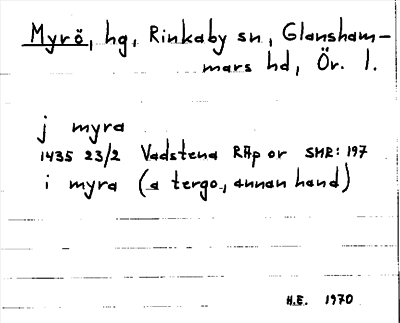 Myrö, hg, Rinkaby sn, Glansham-
mars hd, Ör. l.
j myra
1435 23/2 Vadstena RAp or SMR: 197
i myra (a tergo, annan hand)
H.E. 1970